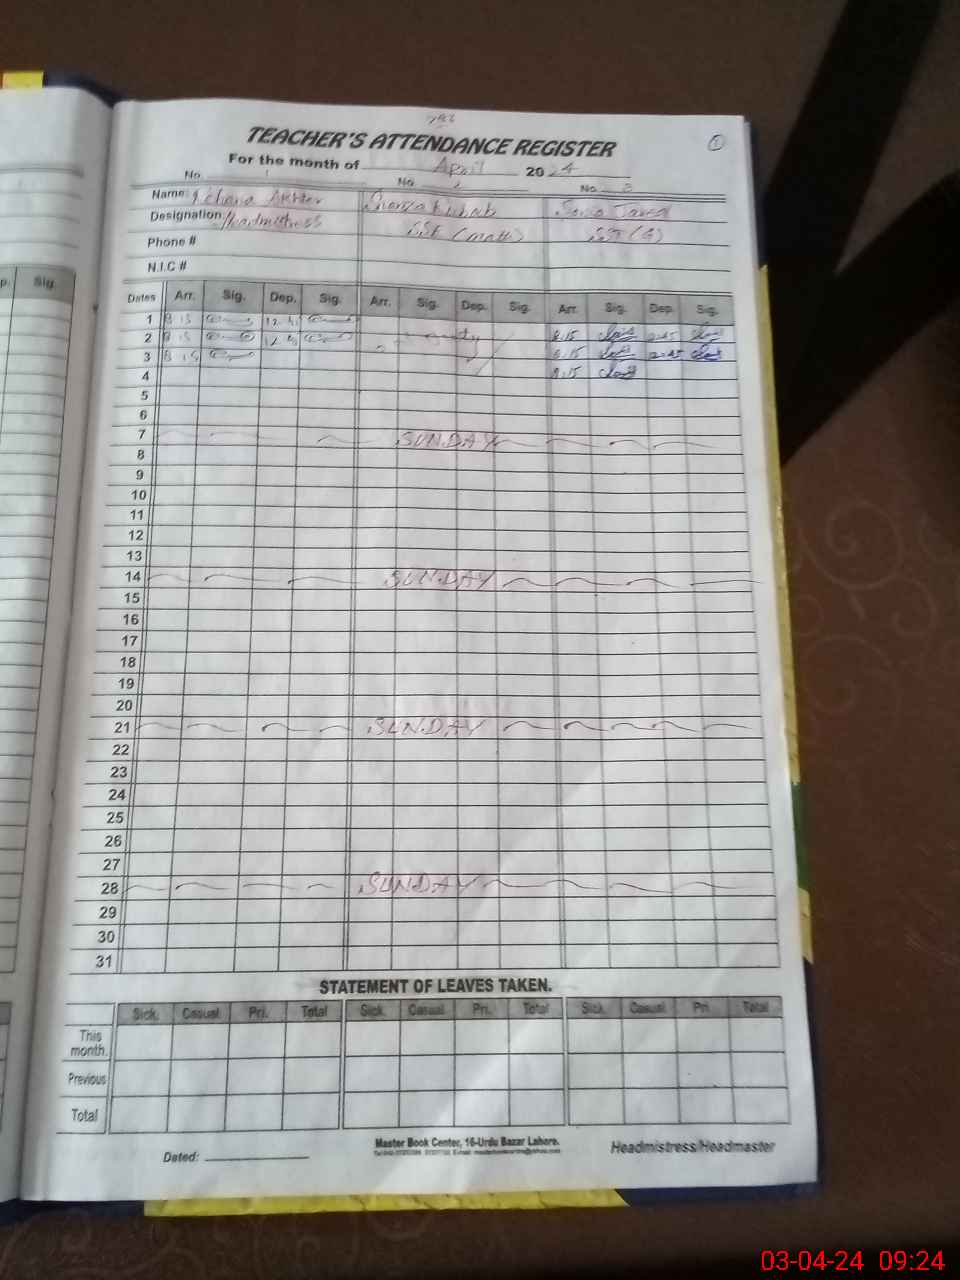 786
1
TEACHER'S ATTENDANCE REGISTER
For the month of April 2024
No. 1 No. 2 No. 3
Name: Akhter
Designation: Headmistress SSE (math)
Phone #
N.I.C #
Dates Arr. Sig. Dep. Sig. Arr. Sig. Dep. Sig. Arr. Sig. Dep. Sig.
1 8 15
2 8 15 8.15
3 8 15 8.15
4 8.15
5
6
7 SUNDAY
8
9
10
11
12
13
14 SUNDAY
15
16
17
18
19
20
21 SUNDAY
22
23
24
25
26
27
28 SUNDAY
29
30
31
STATEMENT OF LEAVES TAKEN.
Sick. Casual Pri. Total Sick. Casual Pri. Total Sick. Casual Pri. Total
This month.
Previous
Total
Master Book Center, 16-Urdu Bazar Lahore.
Dated: Headmistress/Headmaster
p. Sig.
03-04-24 09:24